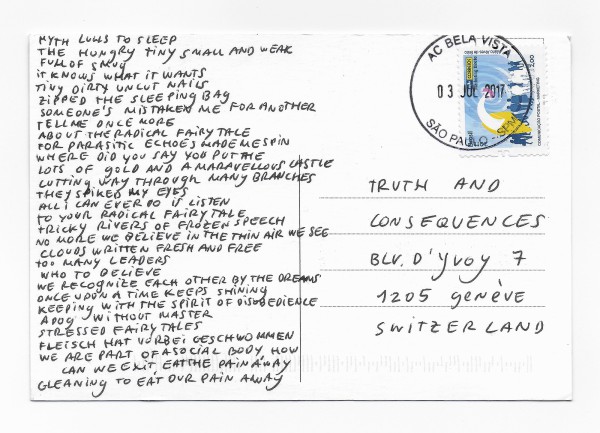 MYTH LULLS TO SLEEP
THE HUNGRY TINY SMALL AND WEAK
FULL OF SMUG
IT KNOWS WHAT IT WANTS
TINY DIRTY UNCUT NAILS
ZIPPED THE SLEEPING BAG
SOMEONE'S MISTAKEN ME FOR ANOTHER
TELL ME ONCE MORE
ABOUT THE RADICAL FAIRYTALE
FOR PARASITIC ECHOES MADE ME SPIN
WHERE DID YOU SAY YOU PUT THE
LOTS OF GOLD AND A MARAVELLOUS CASTLE
CUTTING WAY THROUGH MANY BRANCHES
THEY SPIKED MY EYES
ALL I CAN EVER DO IS LISTEN
TO YOUR RADICAL FAIRYTALE
TRICKY RIVERS OF FROZEN SPEECH
NO MORE WE BELIEVE IN THE THIN AIR WE SEE
CLOUDS WRITTEN FRESH AND FREE
TOO MANY LEADERS
WHO TO BELIEVE
WE RECOGNIZE EACH OTHER BY THE DREAMS
ONCE UPON A TIME KEEPS SHINING
KEEPING WITH THE SPIRIT OF DISOBEDIENCE
A DOG WITHOUT MASTER
STRESSED FAIRYTALES
FLEISCH HAT VORBEI GESCHWOMMEN
WE ARE PART OF A SOCIAL BODY HOW
CAN WE EXIT, EAT THE PAIN AWAY
GLEANING TO EAT, OUR PAIN AWAY
AC BELA VISTA
03 JUL 2017
SÃO PAULO - SPM
TRUTH AND
CONSEQUENCES
BLV. D'YVOY 7
1205 GENÈVE
SWITZERLAND